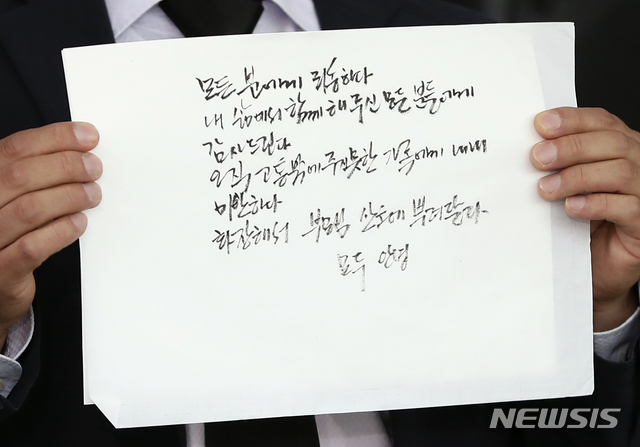 모든 분에게 죄송하다
내 삶에서 함께해 주신 모든 분들에게
감사드린다
오직 고통밖에 주지 못한 가족에게 내내
미안하다
화장해서 부모님 산소에 뿌려달라
모두 안녕
NEWSIS